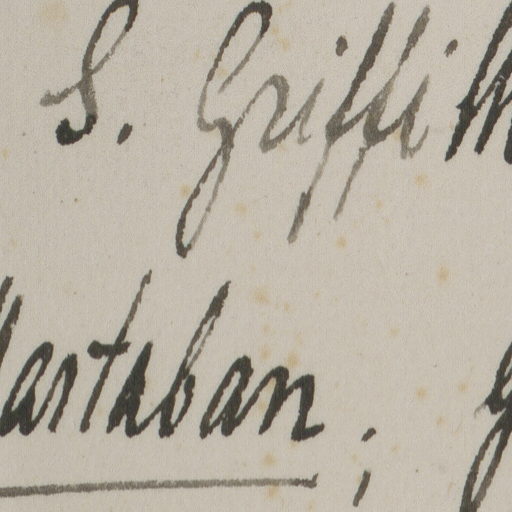 S. Griffith
Martaban;